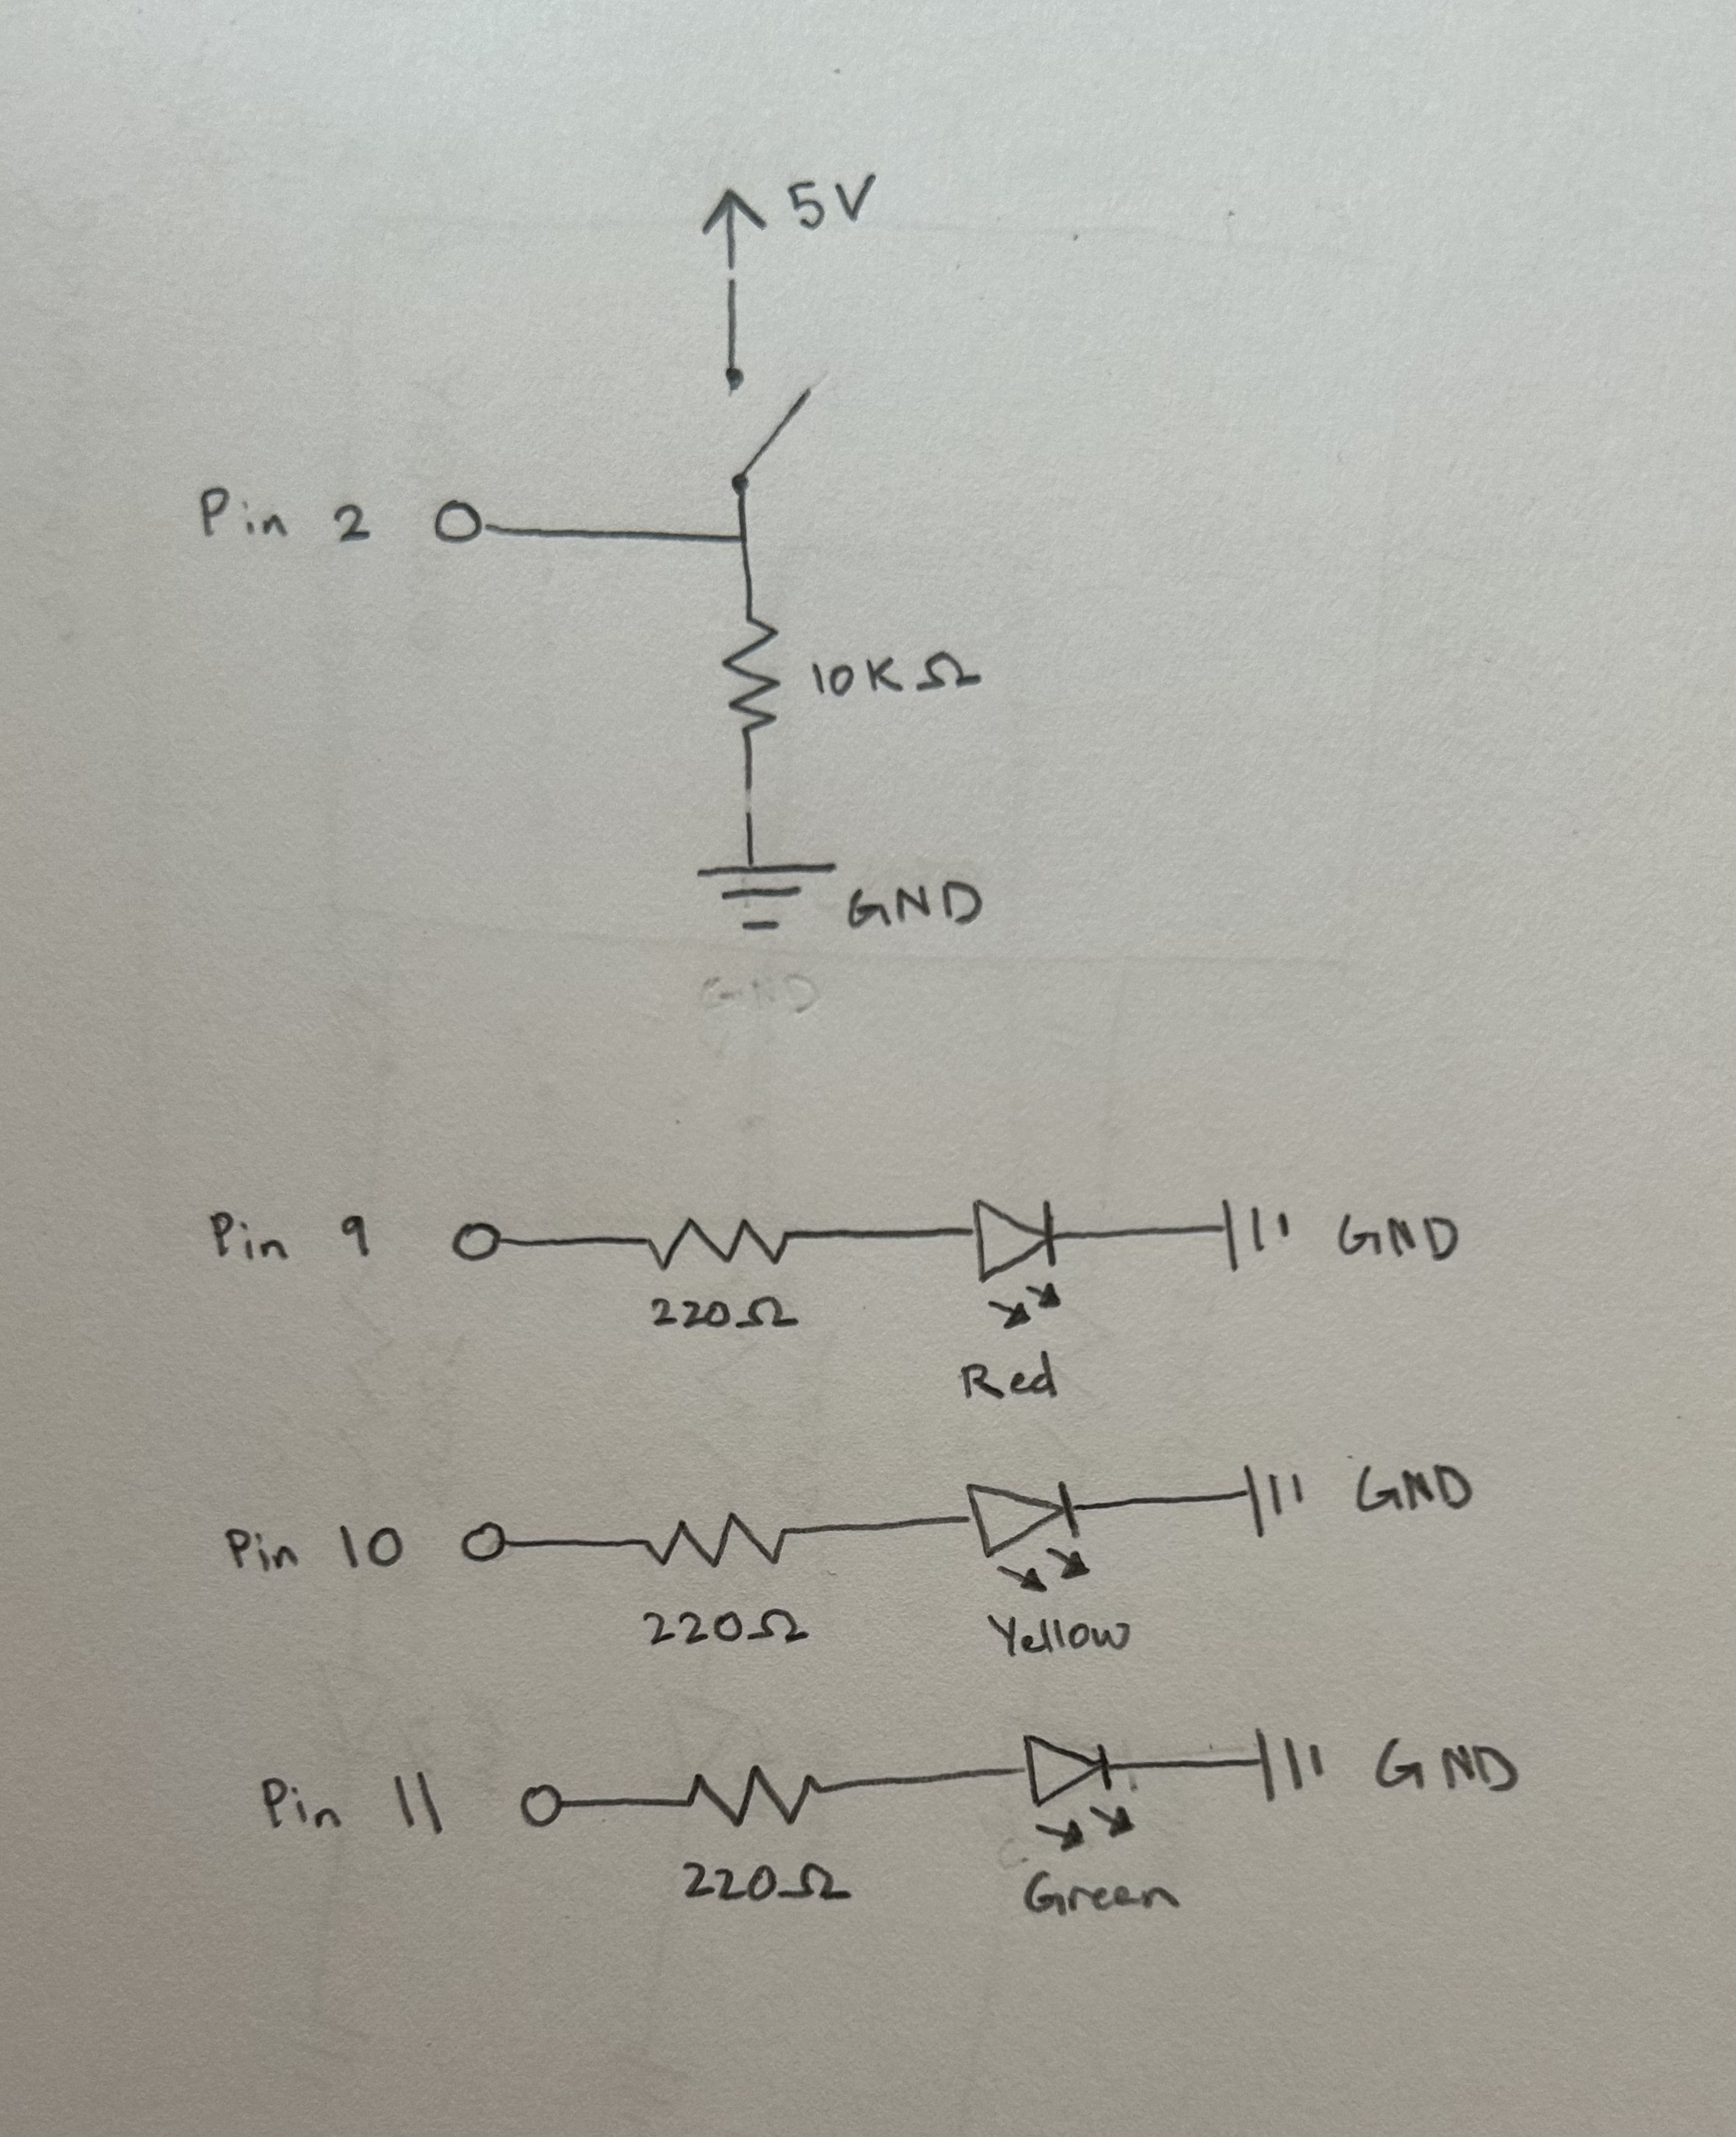 5V
Pin 2
10KΩ
GND
GND
Pin 9
220Ω
Red
GND
Pin 10
220Ω
Yellow
GND
Pin 11
220Ω
Green
GND